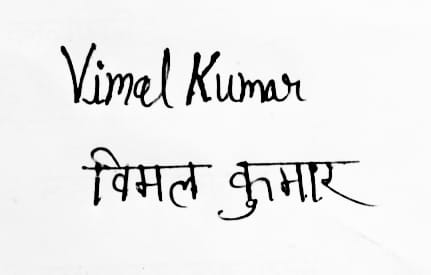 Vimal Kumar
विमल कुमार